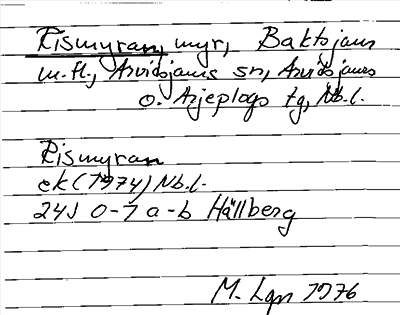 Rismyran, myr, Baktsjaur
m.fl., Arvidsjaurs sn, Arvidsjaurs
o. Arjeplogs tg, Nb.l.
Rismyran
ek (1974) Nb.l.
24J 0-1 a-b Hällberg
M. Lgn 1976